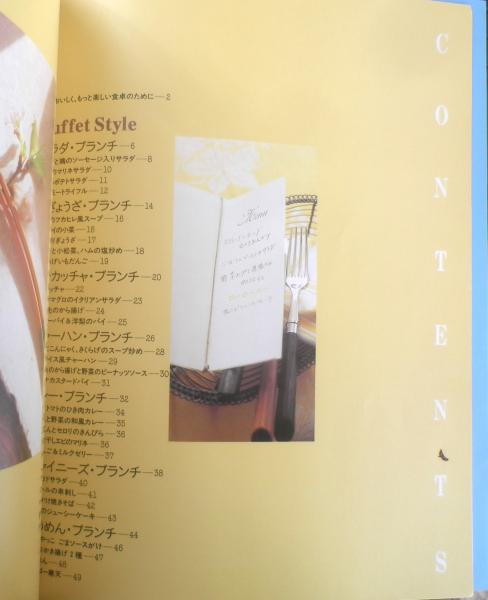 CONTENTS
おいしく、もっと楽しい食卓のために—2
uffet Style
ラダ・ブランチ—6
と鶏のソーセージ入りサラダ—8
マリネサラダ—10
ポテトサラダ—11
ートライフル—12
ぎょうざ・ブランチ—14
フカヒレ風スープ—16
イの小菜—16
ぎょうざ—17
と小松菜、ハムの塩炒め—18
げいもだんご—18
カッチャ・ブランチ—20
ッチャ—22
マグロのイタリアンサラダ—23
のから揚げ—24
ーパイ&洋梨のパイ—25
ャーハン・ブランチ—26
こんにゃく、きくらげのスープ炒め—28
イス風チャーハン—29
のから揚げと野菜のピーナッツソース—30
ナカスタードパイ—31
ー・ブランチ—32
トマトのひき肉カレー—34
と野菜の和風カレー—35
んとセロリのきんぴら—36
干しエビのマリネ—36
ご&ミルクゼリー—37
ャイニーズ・ブランチ—38
ドサラダ—40
ールの串刺し—41
け焼きそば—42
のジューシーケーキ—43
めん・ブランチ—44
やっこ ごまソースがけ—46
かき揚げ2種—47
ん—48
ー寒天—49
Menu